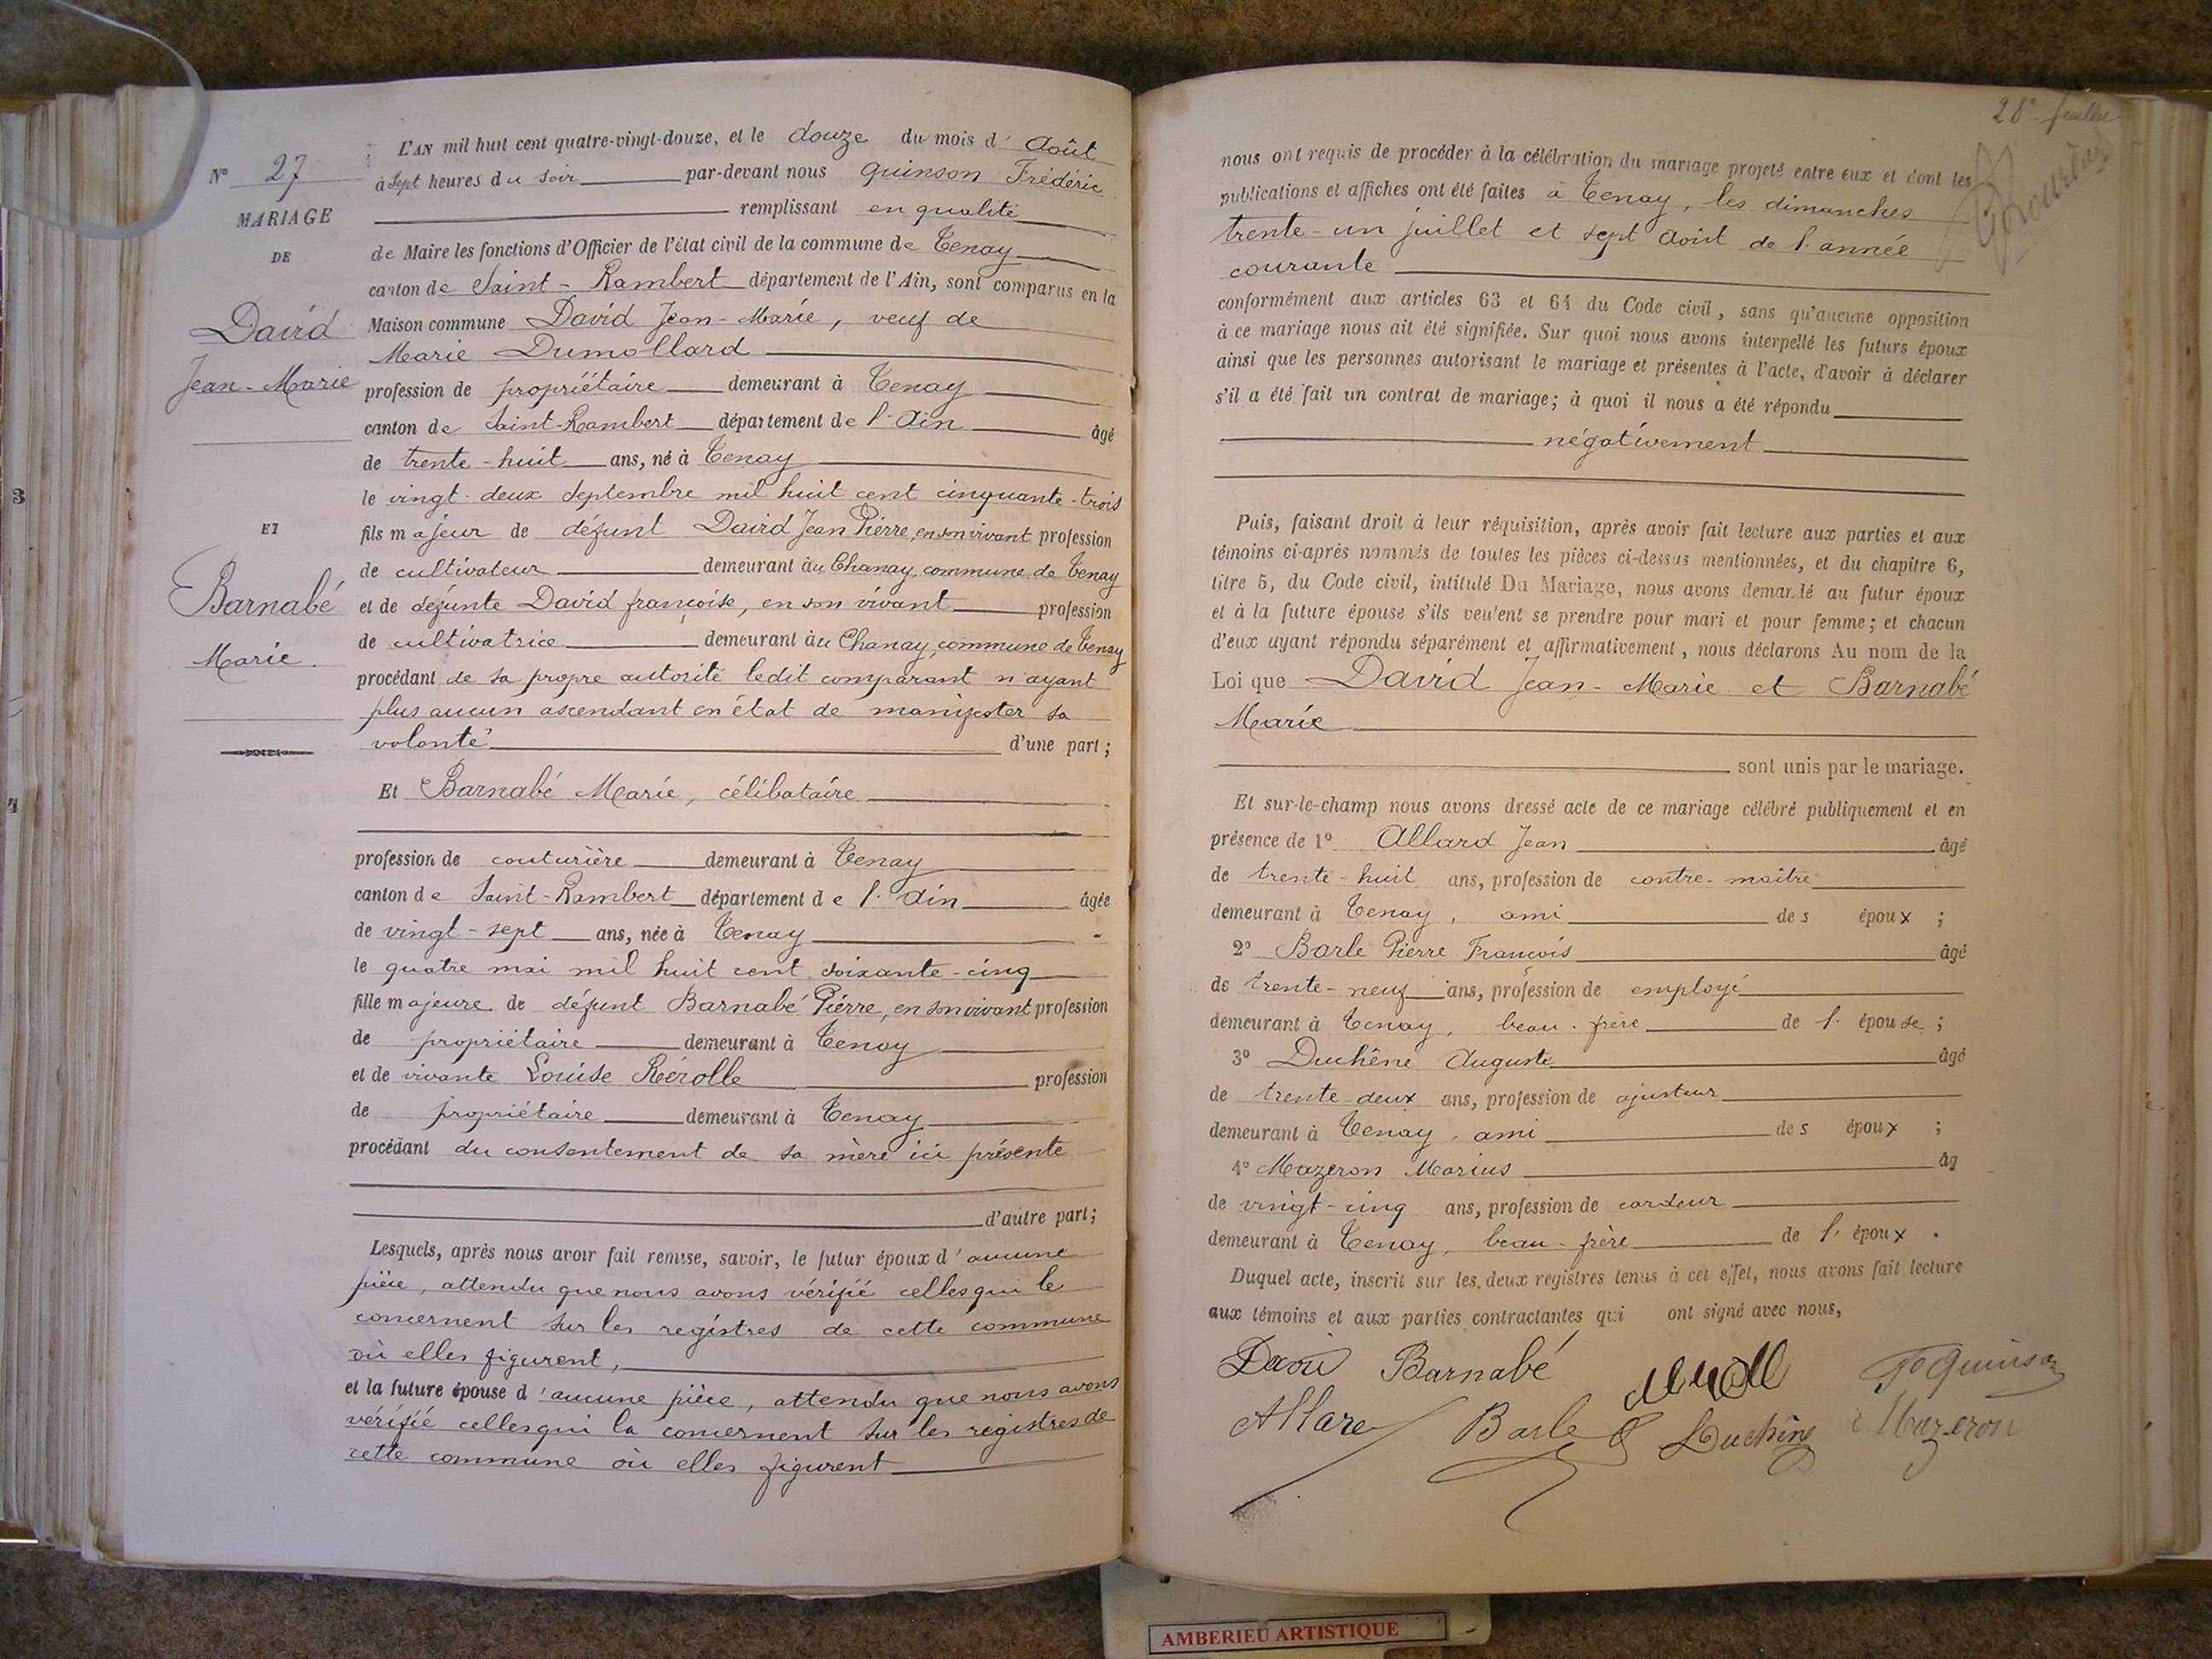 L'AN mil huit cent quatre-vingt-douze, et le douze du mois d'Août
à Sept heures du soir par-devant nous Quinson Frédéric
remplissant en qualité
de Maire les fonctions d'Officier de l'état civil de la commune de Tenay
canton de Saint-Rambert département de l'Ain, sont comparus en la
Maison commune David Jean-Marie, veuf de
Marie Dumollard
profession de propriétaire demeurant à Tenay
canton de Saint-Rambert département de l'Ain âgé
de trente-huit ans, né à Tenay
le vingt-deux septembre mil huit cent cinquante-trois
fils majeur de défunt David Jean Pierre, en son vivant profession
de cultivateur demeurant au Chanay, commune de Tenay
et de défunte David françoise, en son vivant profession
de cultivatrice demeurant au Chanay, commune de Tenay
procédant de sa propre autorité ledit comparant n'ayant
plus aucun ascendant en état de manifester sa
volonté d'une part;
Et Barnabé Marie, célibataire
profession de couturière demeurant à Tenay
canton de Saint-Rambert département de l'Ain âgée
de vingt-sept ans, née à Tenay
le quatre mai mil huit cent soixante-cinq
fille majeure de défunt Barnabé Pierre, en son vivant profession
de propriétaire demeurant à Tenay
et de vivante Louise Rérolle profession
de propriétaire demeurant à Tenay
procédant du consentement de sa mère ici présente
d'autre part;
Lesquels, après nous avoir fait remise, savoir, le futur époux d'aucune
pièce, attendu que nous avons vérifié celles qui le
concernent sur les registres de cette commune
où elles figurent,
et la future épouse d'aucune pièce, attendu que nous avons
vérifié celles qui la concernent sur les registres de
cette commune où elles figurent
N° 27
MARIAGE
DE
David
Jean-Marie
ET
Barnabé
Marie.
28e feuillet
nous ont requis de procéder à la célébration du mariage projeté entre eux et dont les
publications et affiches ont été faites à Tenay, les dimanches
trente-un juillet et sept août de l'année
courante
conformément aux articles 63 et 64 du Code civil, sans qu'aucune opposition
à ce mariage nous ait été signifiée. Sur quoi nous avons interpellé les futurs époux
ainsi que les personnes autorisant le mariage et présentes à l'acte, d'avoir à déclarer
s'il a été fait un contrat de mariage; à quoi il nous a été répondu
négativement
Puis, faisant droit à leur réquisition, après avoir fait lecture aux parties et aux
témoins ci-après nommés de toutes les pièces ci-dessus mentionnées, et du chapitre 6,
titre 5, du Code civil, intitulé Du Mariage, nous avons demandé au futur époux
et à la future épouse s'ils veulent se prendre pour mari et pour femme; et chacun
d'eux ayant répondu séparément et affirmativement, nous déclarons Au nom de la
Loi que David Jean-Marie et Barnabé
Marie
sont unis par le mariage.
Et sur-le-champ nous avons dressé acte de ce mariage célébré publiquement et en
présence de 1° Allard Jean âgé
de trente-huit ans, profession de contre-maître
demeurant à Tenay, ami des époux ;
2° Barle Pierre François âgé
de trente-neuf ans, profession de employé
demeurant à Tenay, beau-frère de l'épouse ;
3° Duchêne Auguste âgé
de trente deux ans, profession de ajusteur
demeurant à Tenay, ami des époux ;
4° Mazeron Marius âg
de vingt-cinq ans, profession de cardeur
demeurant à Tenay, beau-frère de l'époux .
Duquel acte, inscrit sur les deux registres tenus à cet effet, nous avons fait lecture
aux témoins et aux parties contractantes qui ont signé avec nous,
David Barnabé Quinson
Allard Barle Duchêne Mazeron
AMBERIEU ARTISTIQUE
3
4